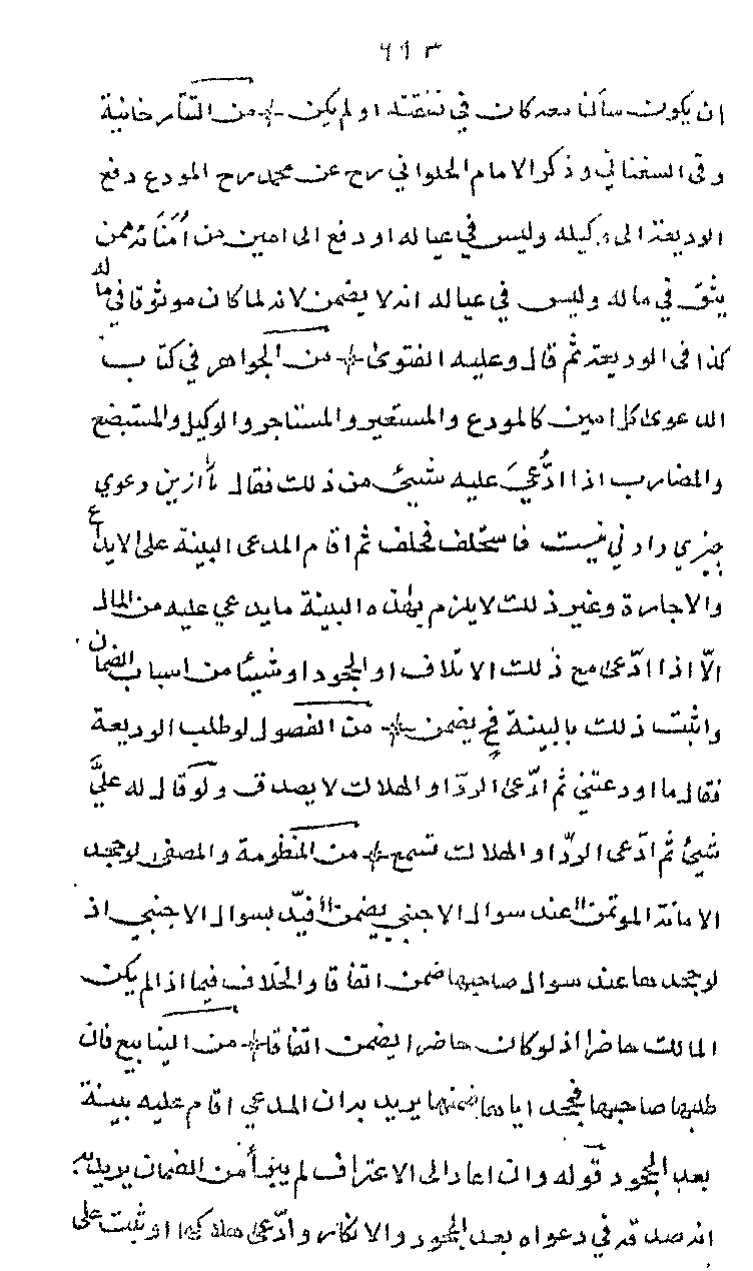 ٦١٣
ان يكون سألنا معه كان في نفقته او لم يكن من التتارخانية
وفى السغناقي وذكر الامام الحلواني رح عن محمد رح المودع دفع
الوديعة الى وكيله وليس في عياله او دفع الى امين من أُمَنَائه ممن
يثق في ماله وليس في عياله انه لا يضمن لانه لما كان موثوقا في ماله
كذا فى الوديعة ثم قال وعليه الفتوى من الجواهر في كتاب
الدعوى كل امين كالمودع والمستعير والمستاجر والوكيل والمستبضع
والمضارب اذا ادُّعِيَ عليه شيئ من ذلك فقال مأازين دعوي
جيزي دادني نيست فاستحلف فحلف ثم اقام المدعى البينة على الايداع
والاجارة وغير ذلك لا يلزم بهذه البينة ما يدعي عليه من المال
الّا اذا ادّعى مع ذلك الاتلاف او الجحود او شيئا من اسباب الضمان
واثبت ذلك بالبينة فح يضمن من الفصول لو طلب الوديعة
فقال ما اودعتني ثم ادّعى الردّ او الهلاك لا يصدق ولو قال له عليَّ
شيئ ثم ادّعى الردّ او الهلاك تسمع من المنظومة والمصفى لو جحد
الامانة الموتمن عند سوال الاجنبي يضمن قيّد بسوال الاجنبي اذ
لو جحدها عند سوال صاحبها ضمن اتفاقا والخلاف فيما اذا لم يكن
المالك حاضرا اذ لو كان حاضرا يضمن اتفاقا من الينابيع فان
طلبها صاحبها فجحد اياها ضمنها يريد به ان المدعي اقام عليه بينة
بعد الجحود قوله وان اعاد الى الاعتراف لم يبرأ من الضمان يريد به
انه صدقه في دعواه بعد الجحود والانكار وادّعى هلاكها او ثبت على